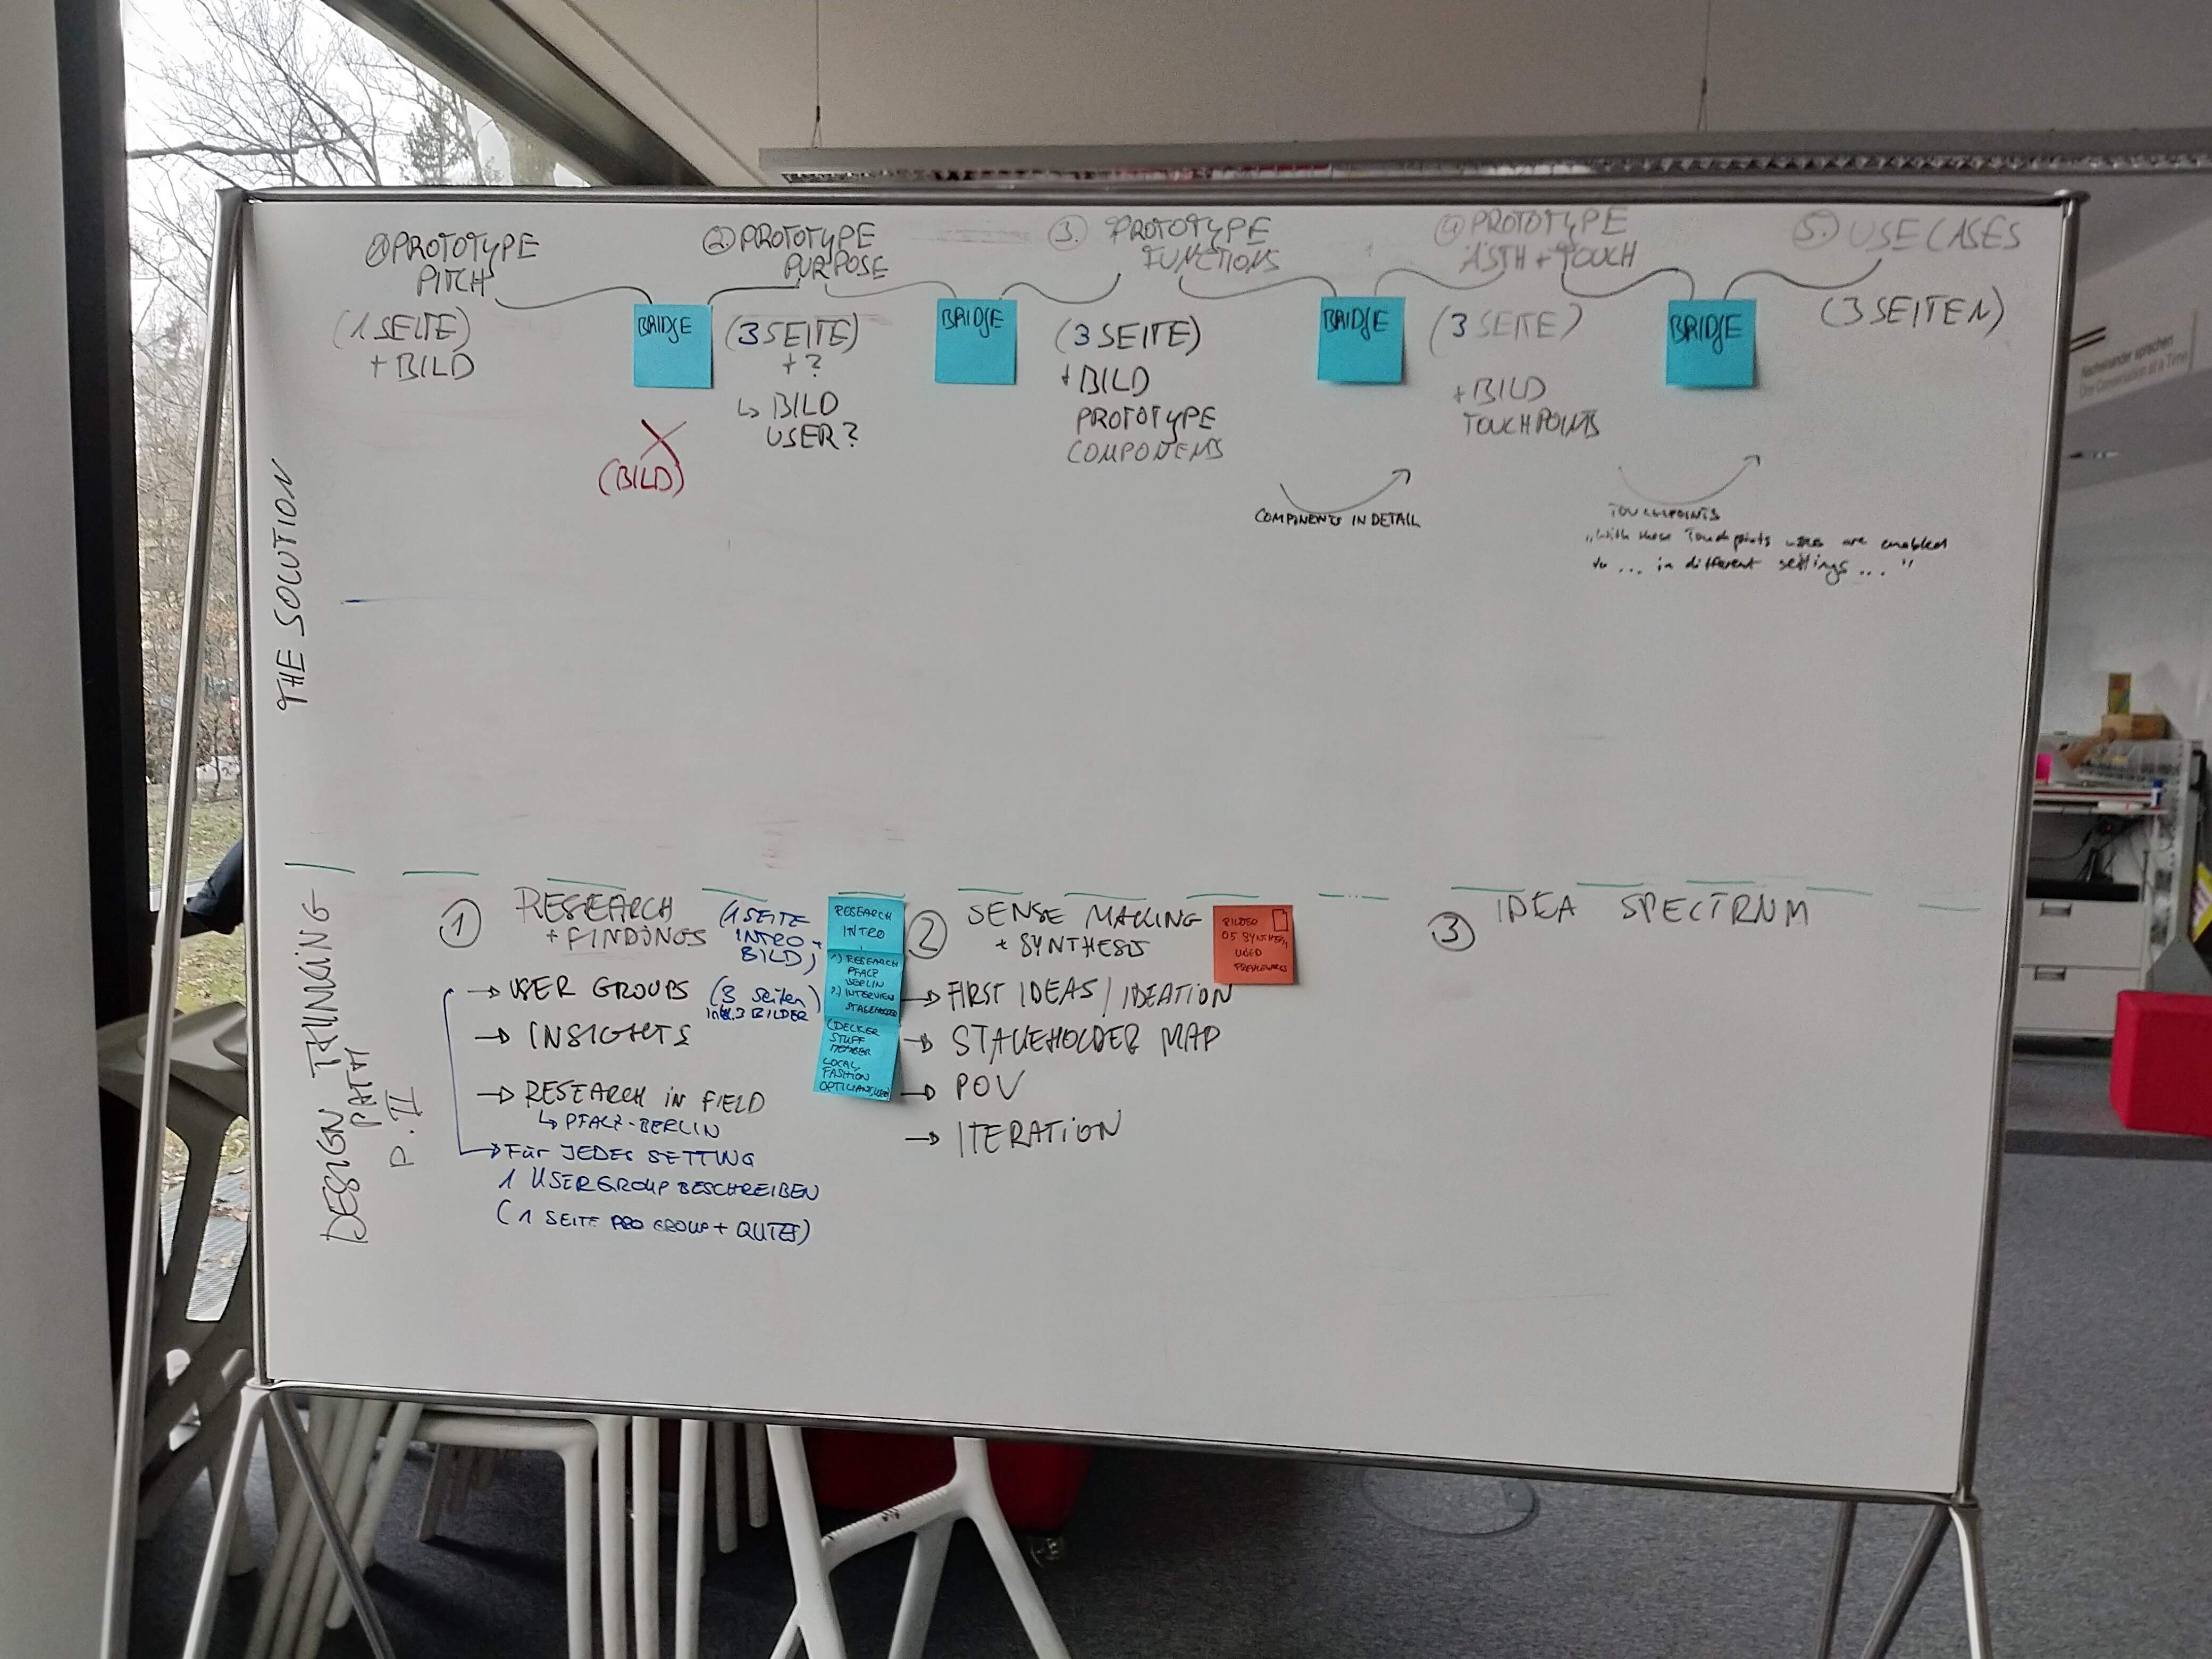 ① PROTOTYPE
PITCH
(1 SEITE)
+ BILD
BRIDGE
X
(BILD)
② PROTOTYPE
PURPOSE
(3 SEITE)
+ ?
↳ BILD
USER?
BRIDGE
③. PROTOTYPE
FUNCTIONS
(3 SEITE)
+ BILD
PROTOTYPE
COMPONENTS
BRIDGE
COMPONENTS IN DETAIL
④ PROTOTYPE
ÄSTH + TOUCH
(3 SEITE)
+ BILD
TOUCHPOINTS
BRIDGE
TOUCHPOINTS
"With these Touchpoints users are enabled
to ... in different settings ... "
⑤. USE CASES
(3 SEITEN)
THE SOLUTION
Nacheinander sprechen
One Conversation at a Time
DESIGN THINKING
PATH
P. II
① RESEARCH
+ FINDINGS
(1 SEITE
INTRO +
BILD)
→ USER GROUPS (3 Seiten
inkl. 3 BILDER)
→ INSIGHTS
→ RESEARCH in FIELD
↳ PFALZ-BERLIN
→ Für JEDES SETTING
1 USERGROUP BESCHREIBEN
(1 SEITE PRO GROUP + QUTES)
RESEARCH
INTRO
1.) RESEARCH
PFALZ
BERLIN
2.) INTERVIEW
STAKEHOLDER
(DECKER
STUFF
MEMBER
LOCAL,
FASHION
② SENSE MAKING
+ SYNTHESIS
BILDER
OF SYNTHESIS
USED
FRAMEWORKS
→ FIRST IDEAS / IDEATION
→ STAKEHOLDER MAP
→ POV
→ ITERATION
③ IDEA SPECTRUM